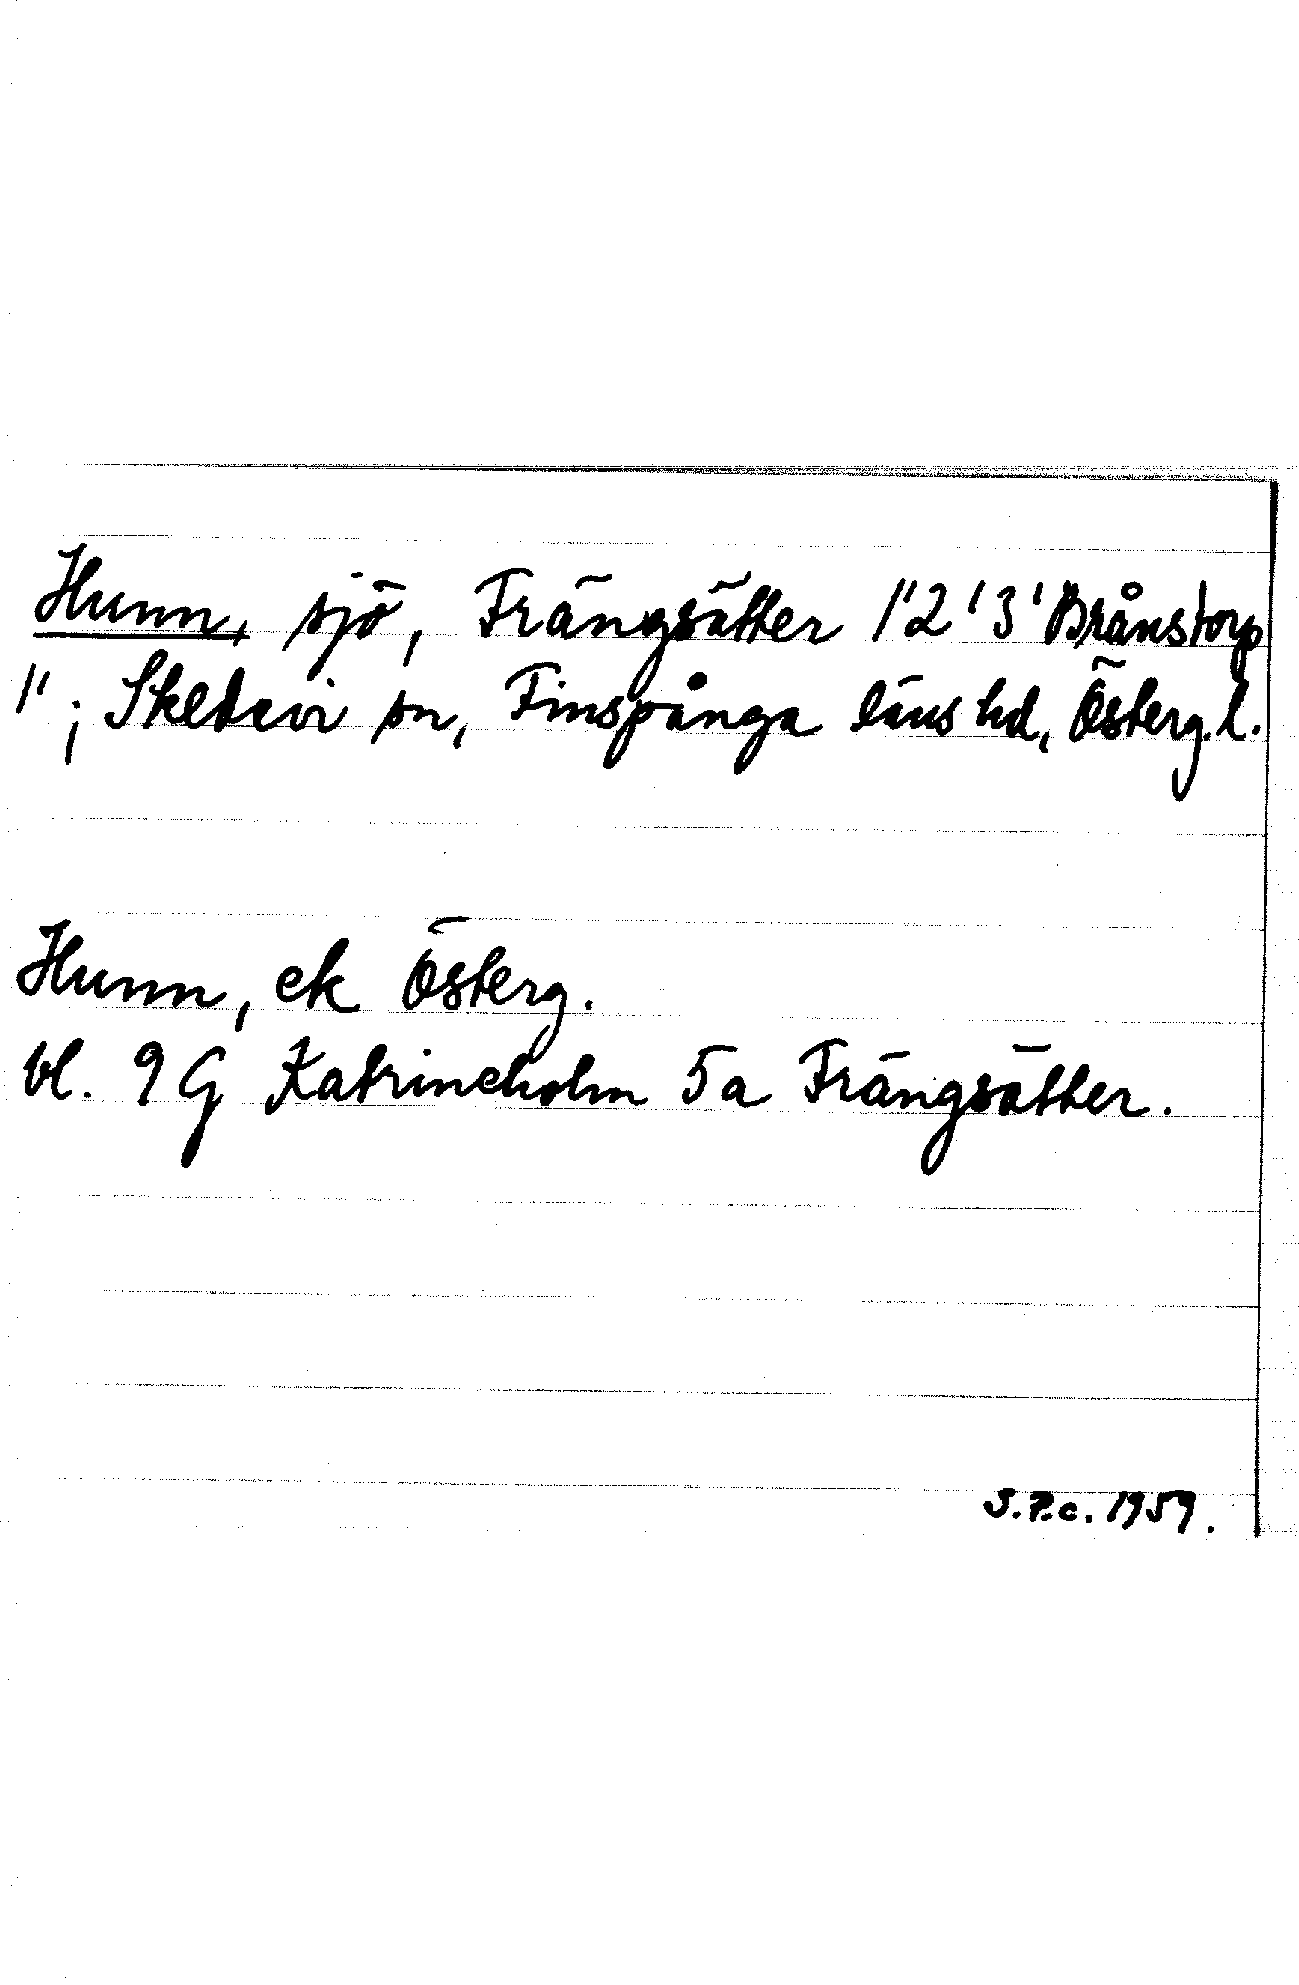 Hunn, sjö, Frängsätter 1'2'3' Brånstorp
1'; Skedevi sn, Finspånga läns hd, Österg. l.
Hunn, ek Österg.
bl. 9 G Katrineholm 5a Frängsätter.
S.P.c. 1959.